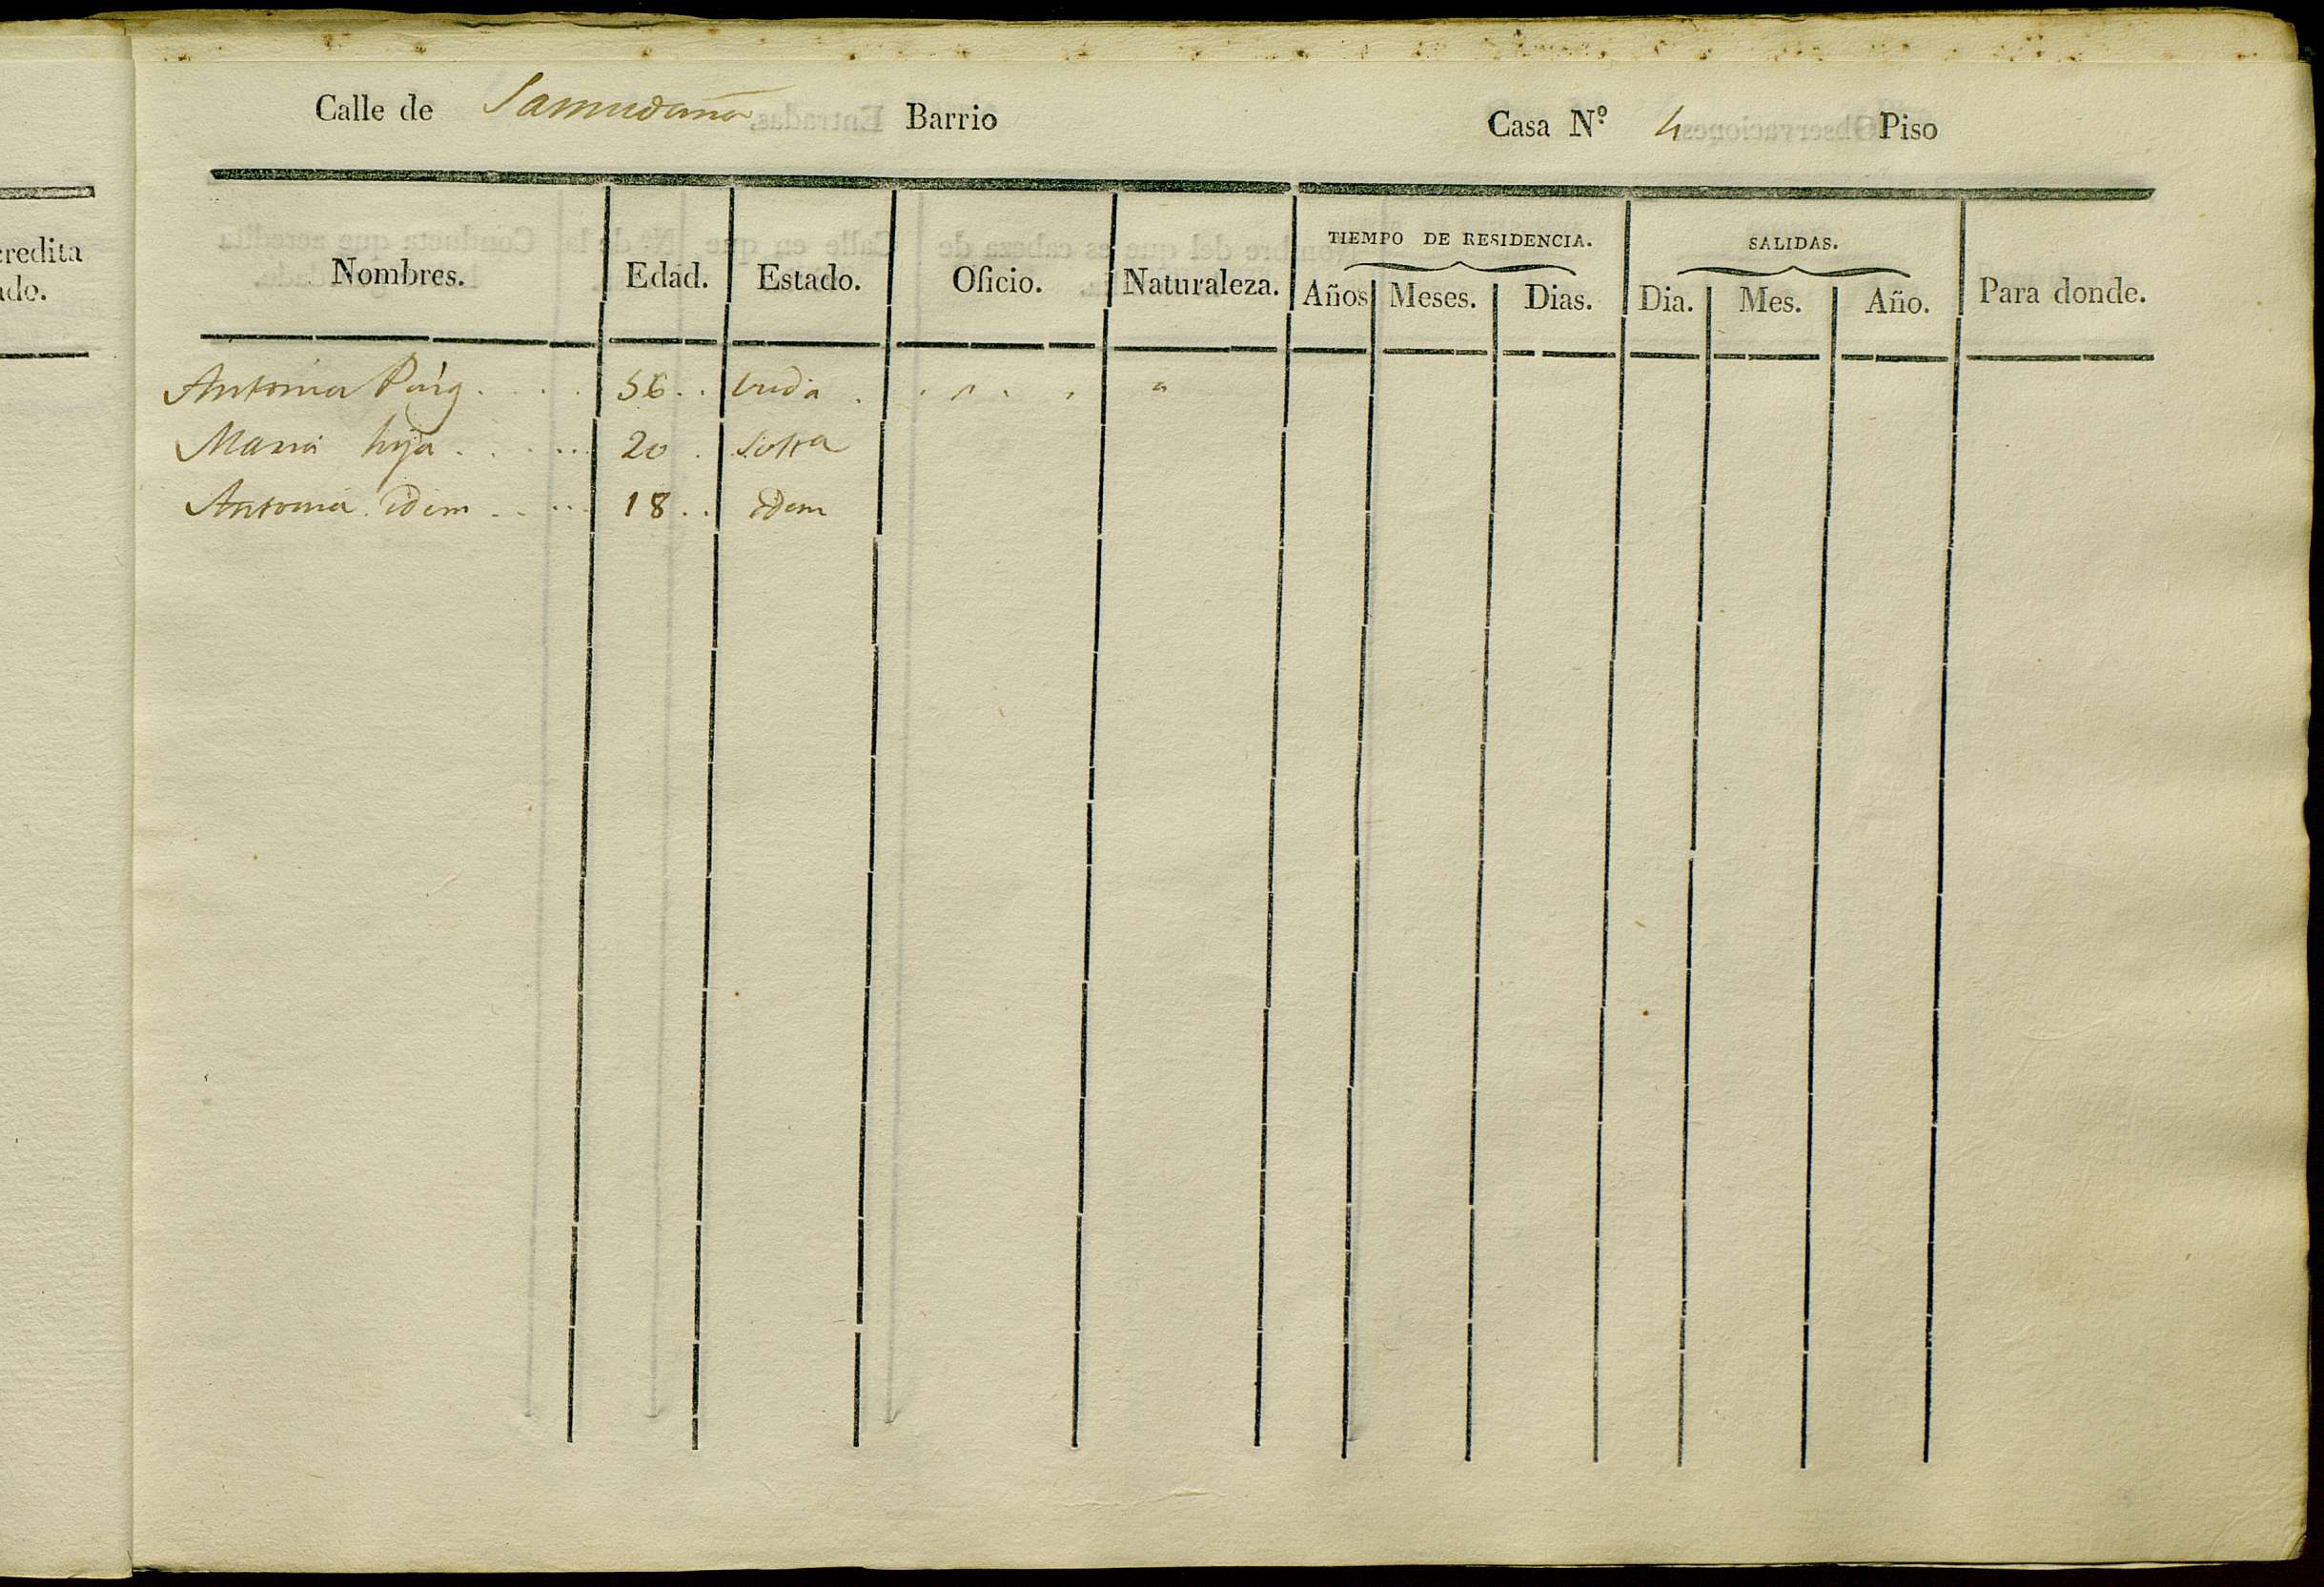 Calle de Samudaña Barrio Casa Nº 4 Piso
credita
ado.
TIEMPO DE RESIDENCIA. SALIDAS.
Nombres. Edad. Estado. Oficio. Naturaleza. Años Meses. Dias. Dia. Mes. Año. Para donde.
Antonia Puig . . . 56 . . Viuda . . . . . "
Maria hija . . . . . . 20 . Soltra
Antonia idem . . . . . 18 . . idem